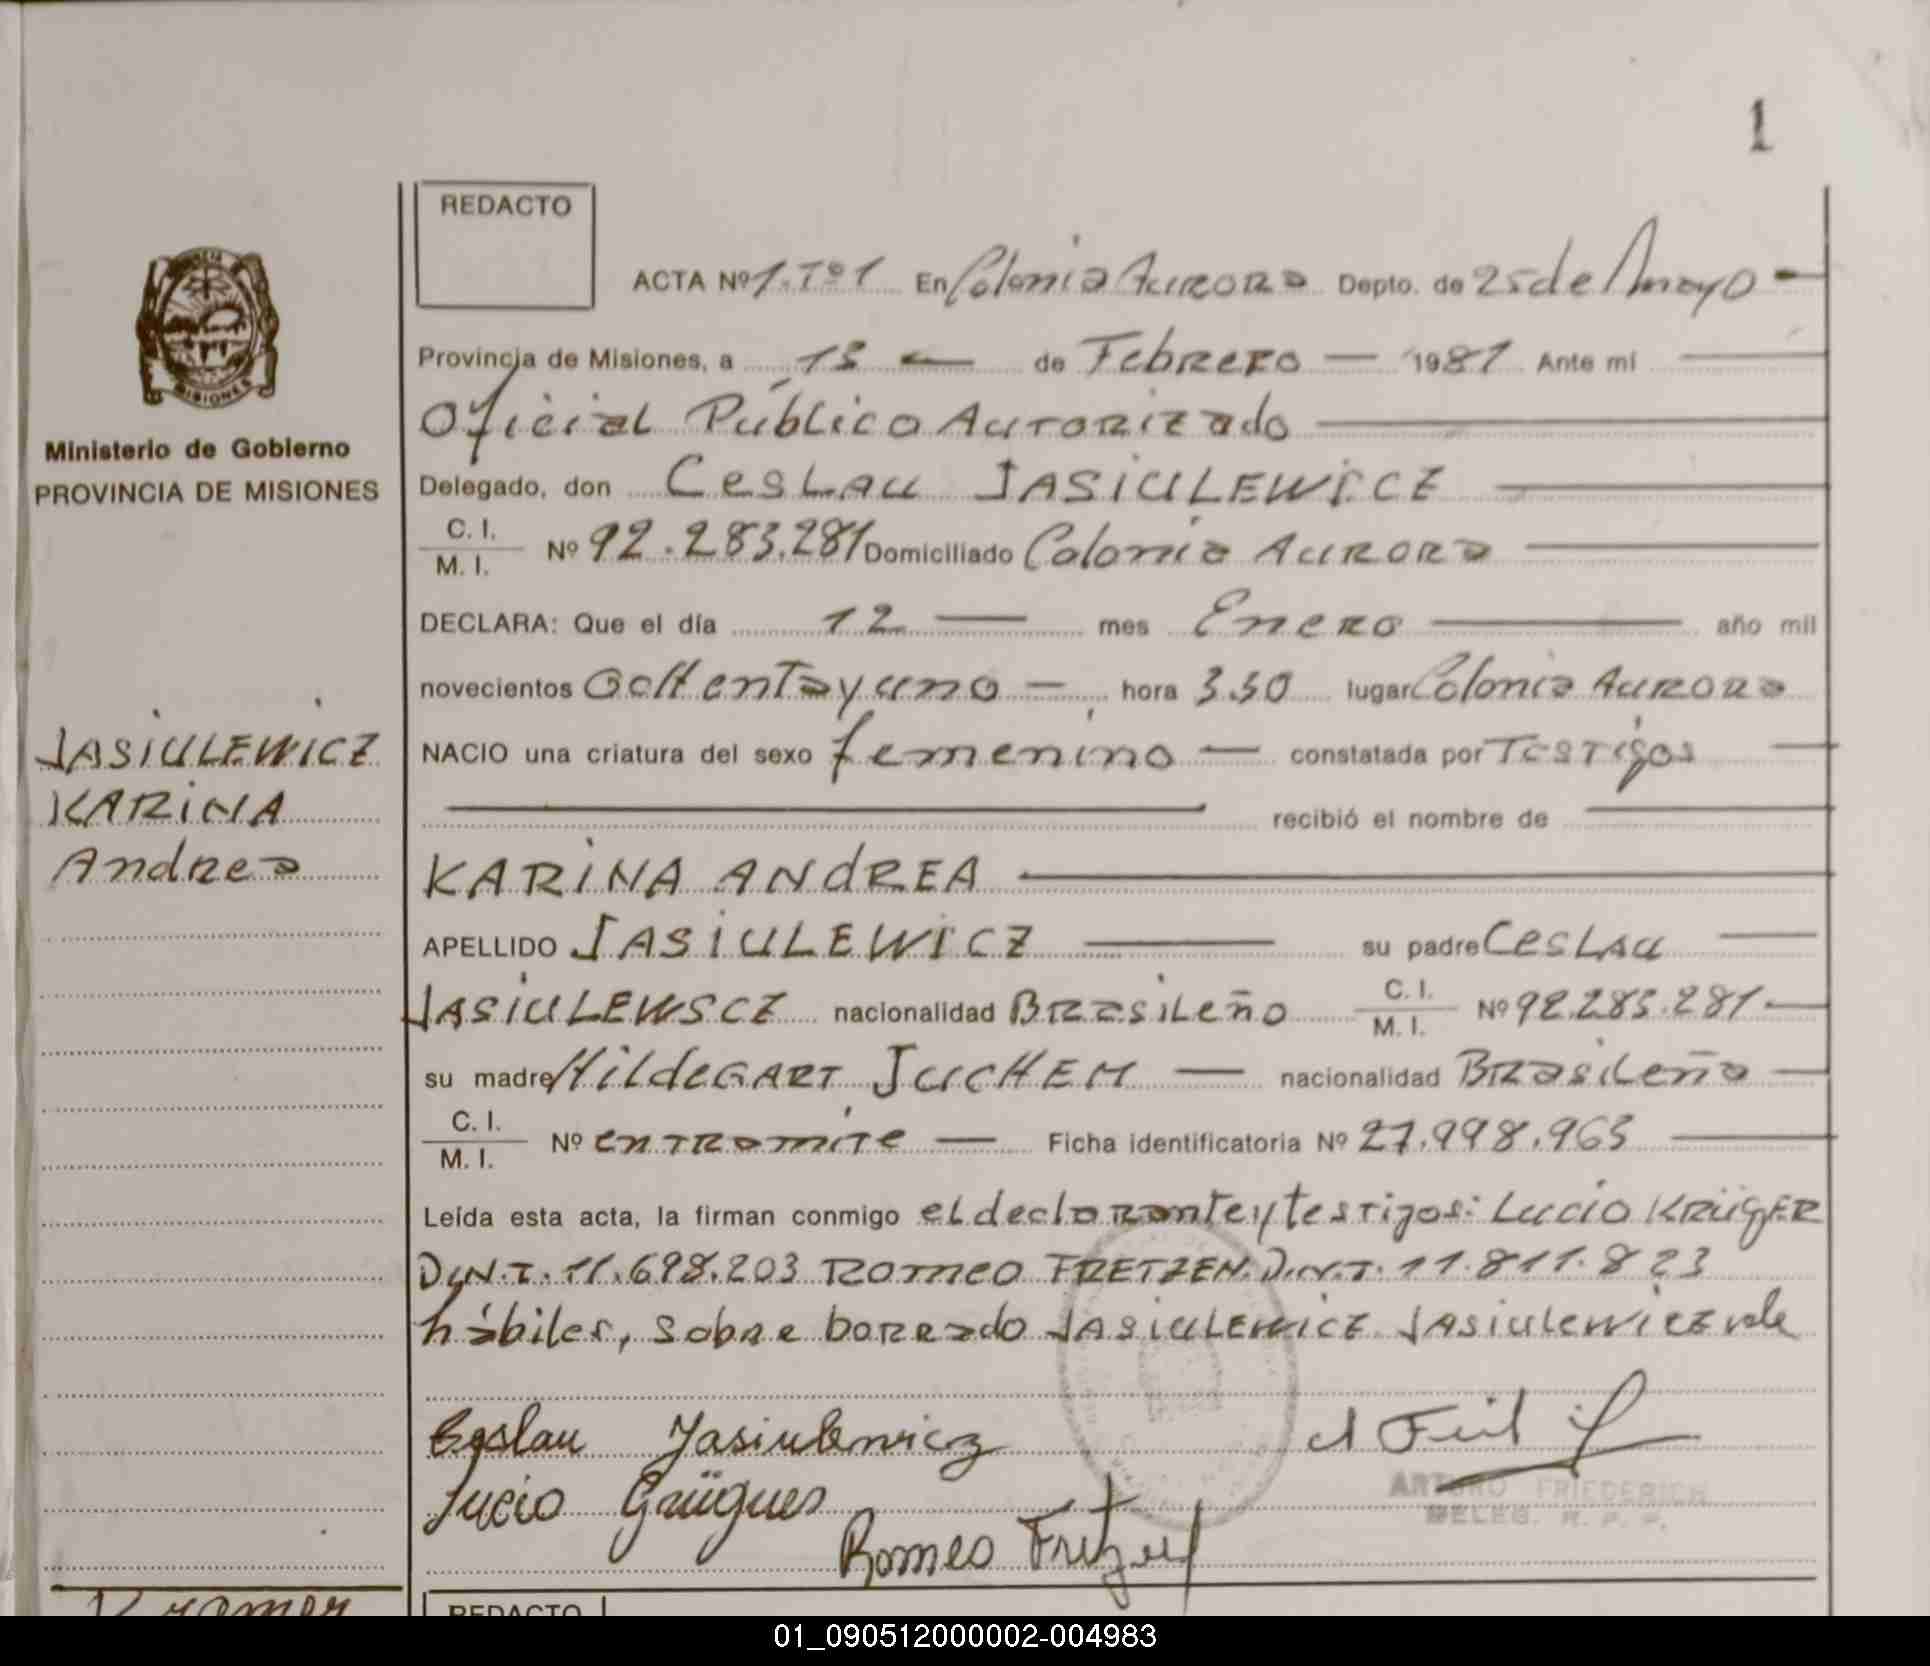 1
REDACTO
ACTA Nº 1.Tº1 En Colonia Aurora Depto. de 25 de Mayo
Provincia de Misiones, a 13 de Febrero 1981 Ante mí
Oficial Público Autorizado
Delegado, don Ceslau JASIULEWICZ
C. I.
M. I.
Nº 92.283.281 Domiciliado Colonia Aurora
DECLARA: Que el día 12 mes Enero año mil
novecientos Ochentayuno hora 3.30 lugar Colonia Aurora
NACIO una criatura del sexo femenino constatada por Testigos
recibió el nombre de
KARINA ANDREA
APELLIDO JASIULEWICZ su padre Ceslau
JASIULEWSCZ nacionalidad Brasileño C. I. M. I. Nº 92.283.281
su madre HildeGART JucHEM nacionalidad Brasileña
C. I.
M. I.
Nº en tramite Ficha identificatoria Nº 27.998.963
Leída esta acta, la firman conmigo el declarante y testigos: Lucio KRÜGER
D.N.I. 11.698.203 Romeo FRETZEN. D.N.I. 11.811.823
hábiles, sobre borrado JASIULEWICZ JASIULEWICZ vale
Ceslau Jasiulewicz
Lucio Gaügues
Romeo
ARTURO FRIEDERICH
DELEG. R. P. P.
Ministerio de Gobierno
PROVINCIA DE MISIONES
JASIULEWICZ
KARINA
Andrea
Kramer
REDACTO
01_090512000002-004983